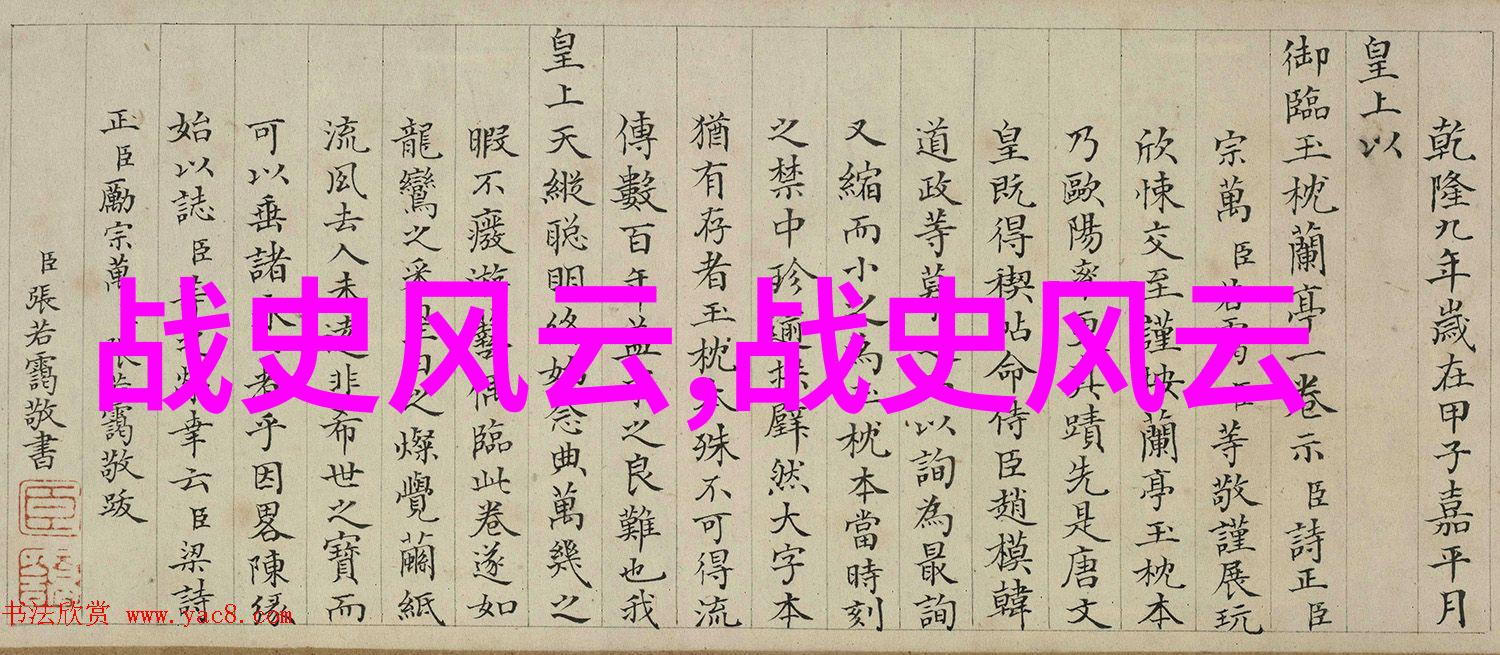 乾隆九年歲在甲子嘉平月
皇上以
御臨玉枕蘭亭一卷示臣詩正臣
宗萬臣若靄臣等敬謹展玩
欣悚交至謹按蘭亭玉枕本
乃歐陽率更真蹟先是唐文
皇既得禊帖命侍臣趙模韓
道政等摹之以詢為最詢
又縮而小之為玉枕本當時刻
之禁中珍逾拱璧然大字本
猶有存者玉枕本殊不可得流
傳數百年益之良難也我
皇上天縱聰明終始念典萬幾之
暇不廢游藝偶臨此卷遂如
龍鸞之采星日之燦覺繭紙
流風去人未遠非希世之寶而
可以垂諸永者乎因畧陳緣
始以誌臣幸云臣梁詩
正臣勵宗萬臣張若靄敬跋
臣張若靄敬書
战史风云,战史风云
书法欣赏 www.yac8.com